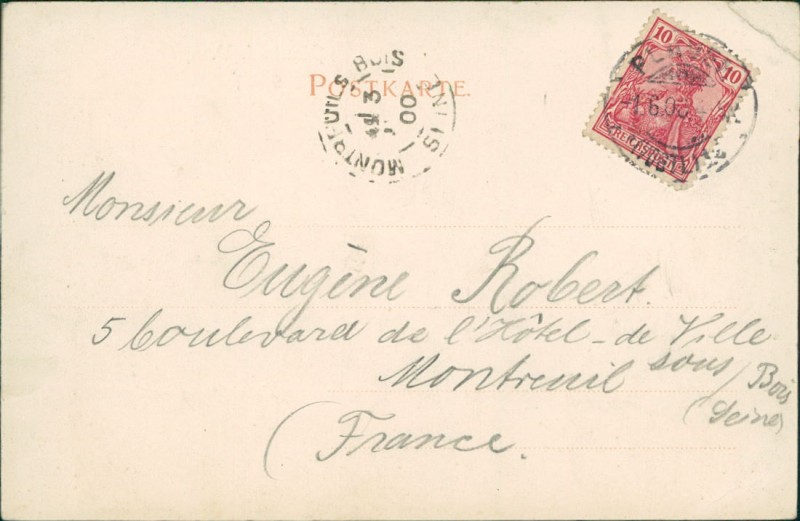 POSTKARTE.
MONTREUIL S BOIS
3
00
10 10
REICHSPOST
-1.6.00
Monsieur
Eugène Robert.
5 boulevard de l'Hôtel-de Ville
Montreuil sous/Bois
(Seine)
(France.